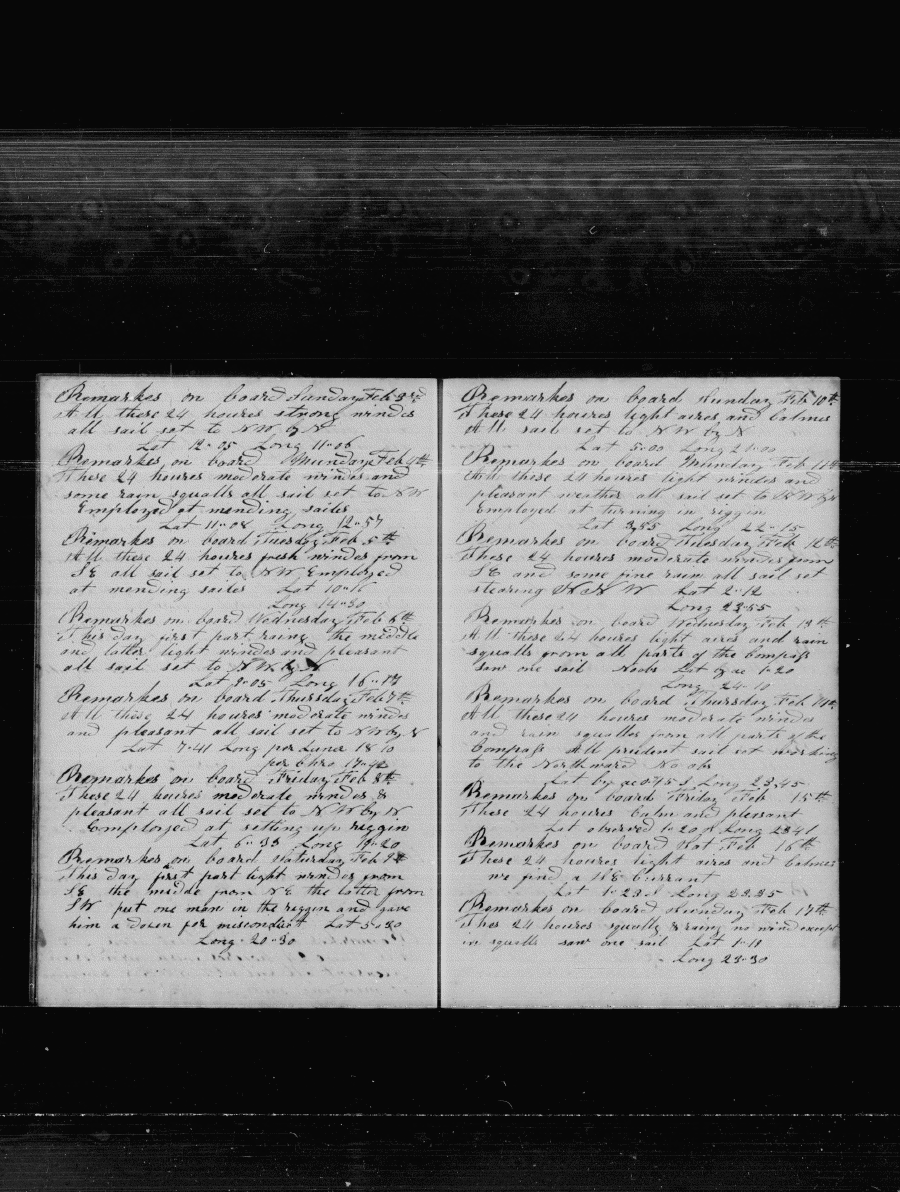 Remarkes on board Sunday Feb 3rd
All these 24 houres strong windes
all sail set to NW by N
Lat 12-05 Long 11-06
Remarkes on board Munday Feb 4th
These 24 houres moderate windes and
some rain squalls all sail set to NW
Employed at mending sailes
Lat 11-08 Long 12-57
Remarkes on board Tuesday Feb 5th
All these 24 houres fresh windes from
SE all sail set to NW Employed
at mending sailes Lat 10-16
Long 14-30
Remarkes on board Wednesday Feb 6th
This day first part rainy the middle
and latter light windes and pleasant
all sail set to NW by N
Lat 9-05 Long 16-17
Remarkes on board Thursday Feb 7th
All these 24 houres moderate windes
and pleasant all sail set to NW by N
Lat 7-41 Long per Luner 18 10
per Chro 17-42
Remarkes on board Friday Feb 8th
These 24 houres moderate windes &
pleasant all sail set to NW by W
Employed at setting up riggin
Lat 6-35 Long 19-20
Remarkes on board Saturday Feb 9th
This day first part light windes from
SE the midde from NE the latter from
SW put one man in the riggin and gave
him a dozen for misconduct Lat 5-30
Long 20-30
Remarkes on board Sunday Feb 10th
These 24 houres light aires and Calmes
All sail set to NW by N
Lat 5-00 Long 21-00
Remarkes on board Munday Feb 11th
All these 24 houres light windes and
pleasant weather all sail set to NW by N
Employed at turning in riggin
Lat 3,55 Long 22-15
Remarkes on board Tuesday Feb 12th
These 24 houres moderate windes from
SE and some fine rain all sail set
stearing NNW Lat 2-12
Long 23-55
Remarkes on board Wednesday Feb 13th
All these 24 houres light aires and rain
squalls from all parts of the Compass
saw one sail Noobs Lat by ac 1-20
Long 24-10
Remarkes on board Thursday Feb 14th
All these 24 houres moderate windes
and rain squalles form all parts of the
Compass All prudent sail set working
to the Northward No obs
Lat by ac 0-75 S Long 23,45
Remarkes on board Friday Feb 15th
These 24 houres Calm and plesant
Lat observed 1-20 S Long 23 41
Remarkes on board Sat Feb 16th
These 24 houres light aires and Calmes
we find a NE Currant
Lat 1-23 S Long 23.35
Remarkes on board Sunday Feb 17th
Thes 24 houres squally & rainy no wind except
in squalls saw one sail Lat 1-11
Long 23-30